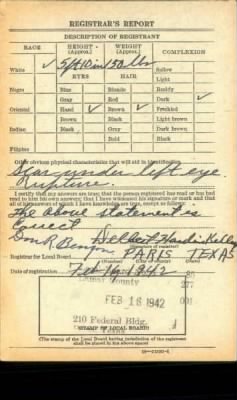 REGISTRAR'S REPORT
DESCRIPTION OF REGISTRANT
RACE HEIGHT (Approx.) WEIGHT (Approx.) COMPLEXION
White ✓ 5ft10in 150 lbs Sallow
EYES HAIR Light
Negro Blue Blonde Ruddy
Gray Red Dark ✓
Oriental Hazel ✓ Brown ✓ Freckled
Brown Black Light brown
Indian Black Gray Dark brown
Filipino Bald Black
Other obvious physical characteristics that will aid in identification
Scar under left eye
Rupture
I certify that my answers are true; that the person registered has read or has had
read to him his own answers; that I have witnessed his signature or mark and that
all of his answers of which I have knowledge are true, except as follows:
The above statement is
Correct
Registrar for Local Board PARIS TEXAS
Date of registration Feb 16, 1942
Lamar County
FEB 16 1942
210 Federal Bldg.
(STAMP OF LOCAL BOARD)
(The stamp of the Local Board having jurisdiction of the registrant
shall be placed in the above space)